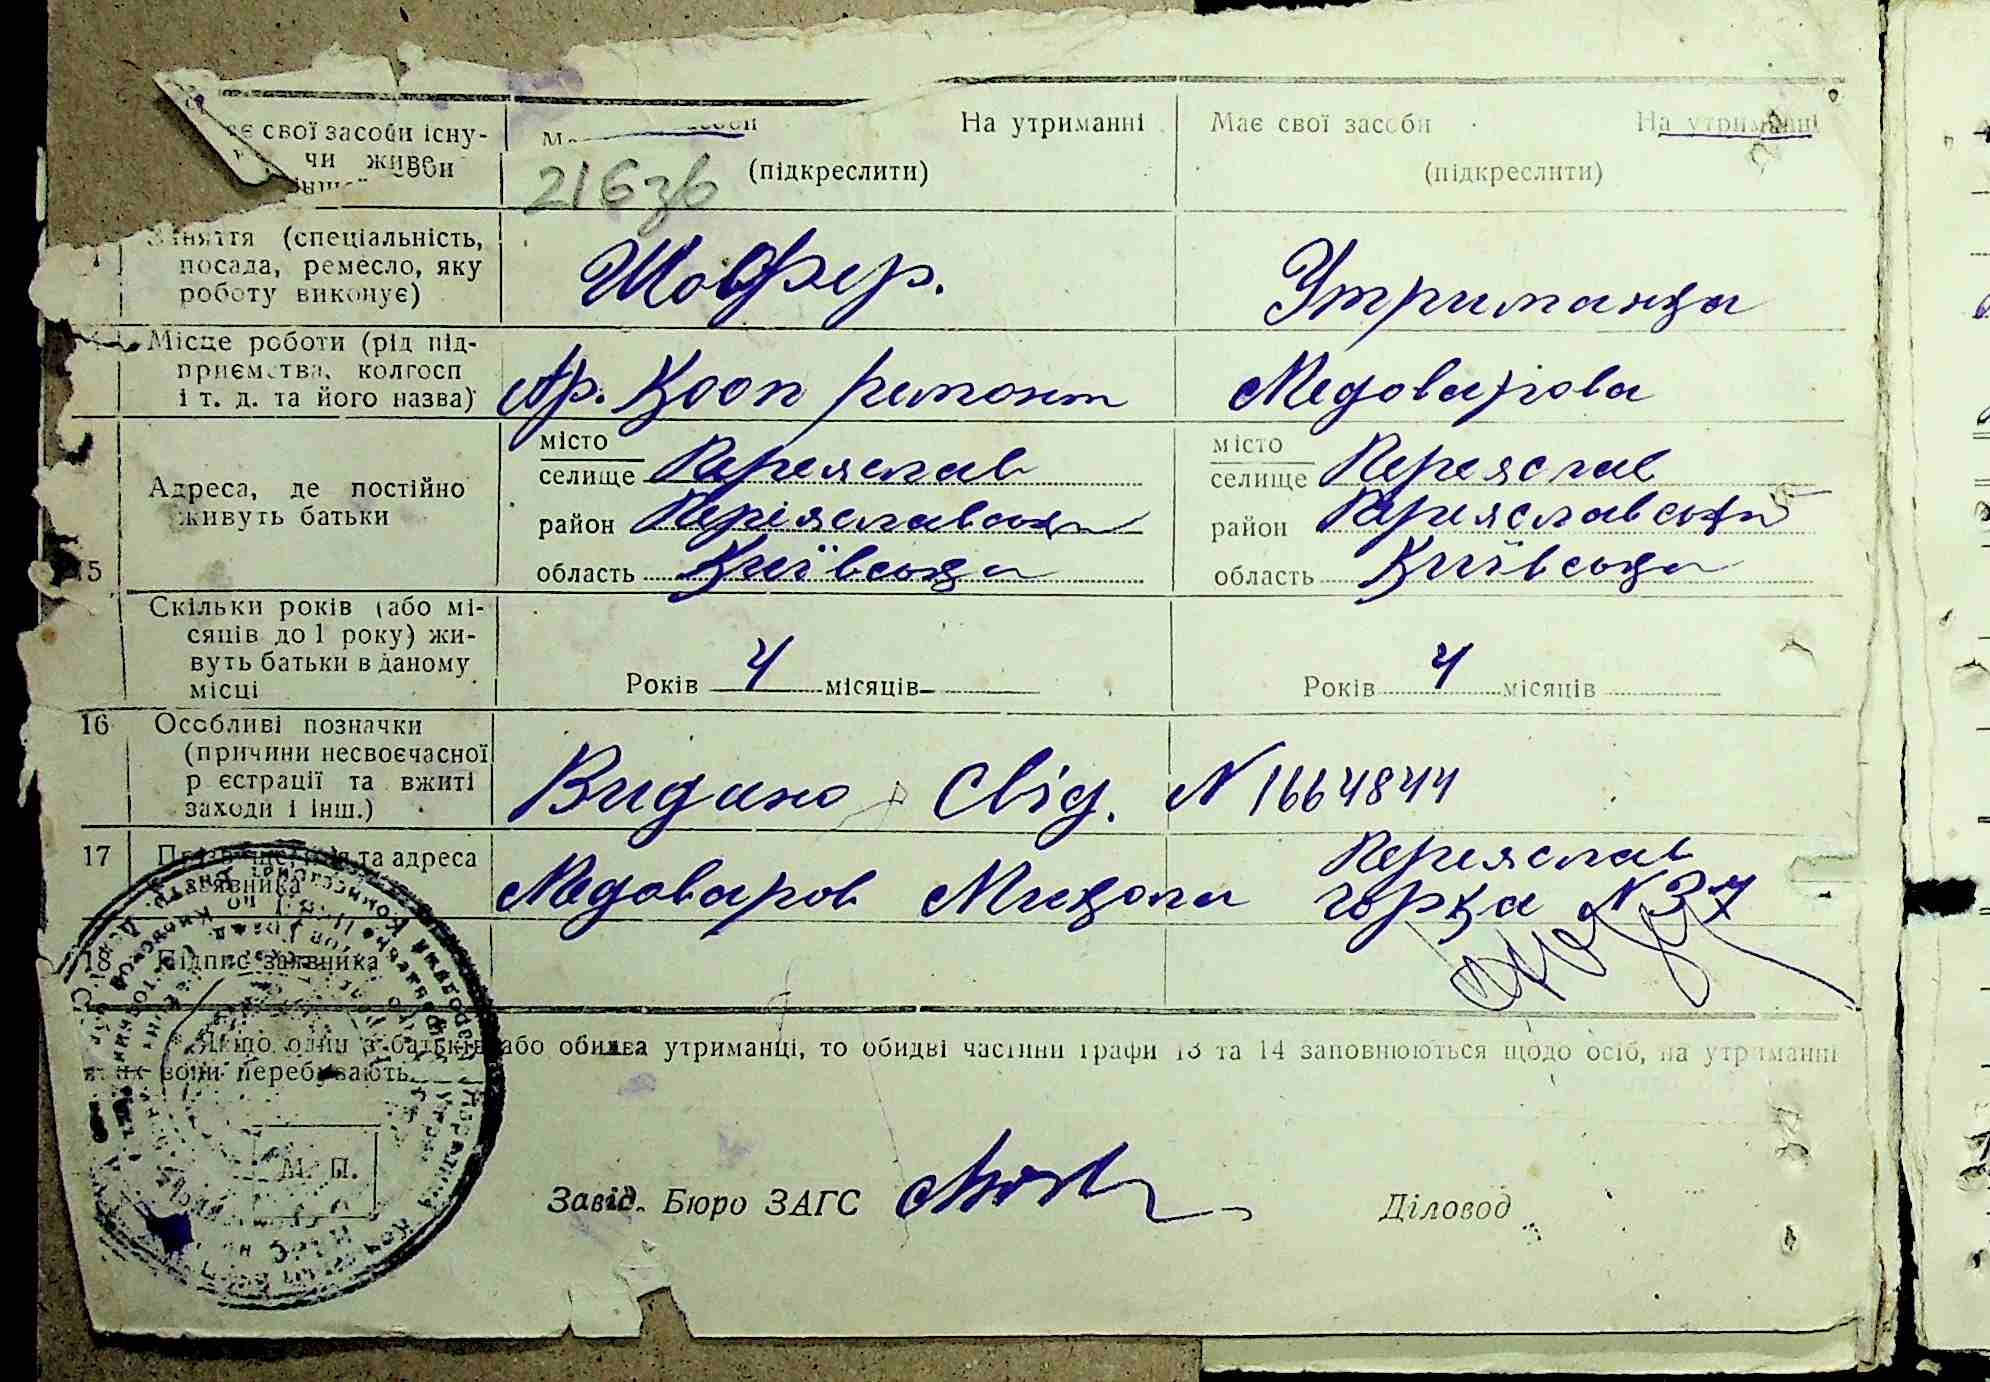 є свої засоби існу- засоби На утриманні Має свої засоби На утриманні
чи живе
(підкреслити) (підкреслити)
216 зв
Заняття (спеціальність,
посада, ремесло, яку
роботу виконує)
Шофер. Утриманка
Місце роботи (рід під-
приємства, колгосп
і т. д. та його назва)
Ар. Кооп ремонт Медоварова
Адреса, де постійно
живуть батьки
місто
селище Переяслав
район Переяславськи
область Київська
місто
селище Переяслав
район Переяславський
область Київська
15
Скільки років (або мі-
сяців до 1 року) жи-
вуть батьки в даному
місці
Років 4 місяців Років 4 місяців
16 Особливі позначки
(причини несвоєчасної
р єстрації та вжиті
заходи і інш.)
Видано Свід. N 1664844
17 та адреса
заявника
Медоваров Микола
Переяслав
горка N 37
18 Підпис заявника
Якщо один з батьків або обидва утриманці, то обидві частини графи 13 та 14 заповнюються щодо осіб, на утриманні
яких вони перебувають
М. П.
Завід. Бюро ЗАГС Діловод